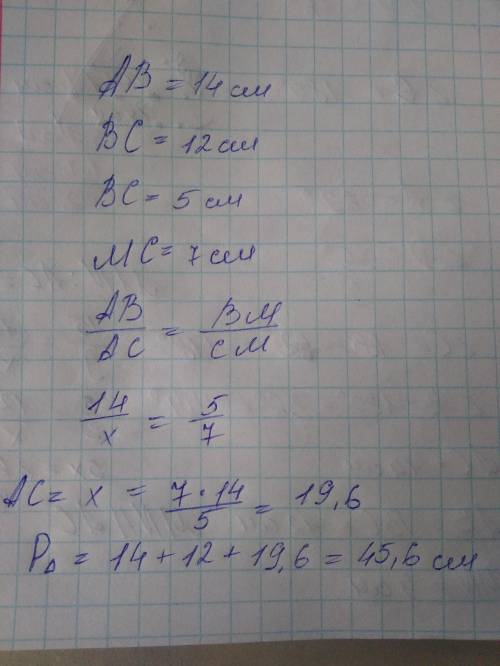 AB = 14 см
BC = 12 см
BC = 5 см
MC = 7 см
AB/AC = BM/CM
14/x = 5/7
AC = x = 7·14/5 = 19,6
PΔ = 14 + 12 + 19,6 = 45,6 см